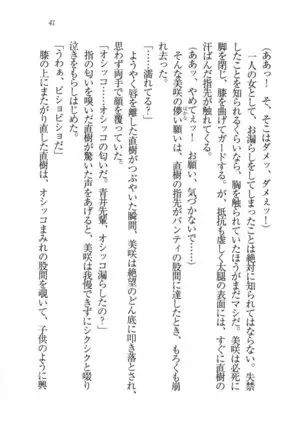 41
（ああっ！　そ、そこはダメッ、ダメぇッ！）
一人の女として、お漏らしをしてしまったことは絶対に知られたくない。失禁
したことを知られるぐらいなら、胸を触られていたほうがまだマシだ。美咲は必死に
脚を閉じ、膝を曲げてガードする。が、抵抗も虚しく太腿の表面には、すぐに直樹の
汗ばんだ指先が触れてくる。
（ああッ、やめてぇッ！　お願い、気づかないでぇ……）
そんな美咲の儚い願いは、直樹の指先がパンティの股間に達したとき、もろくも崩
れ去った。
「……濡れてる？」
ようやく唇を離した直樹がつぶやいた瞬間、美咲は絶望のどん底に叩き落とされ、
思わず両手で顔を覆っていた。
「オシッコ……オシッコの匂いだ。青井先輩、オシッコ漏らしたの？」
指の匂いを嗅いだ直樹が驚いた声をあげると、美咲は我慢できずにシクシクと啜り
泣きをもらしはじめた。
「うわぁ、ビショビショだ」
膝の上にまたがり直した直樹は、オシッコまみれの股間を覗いて、子供のように興